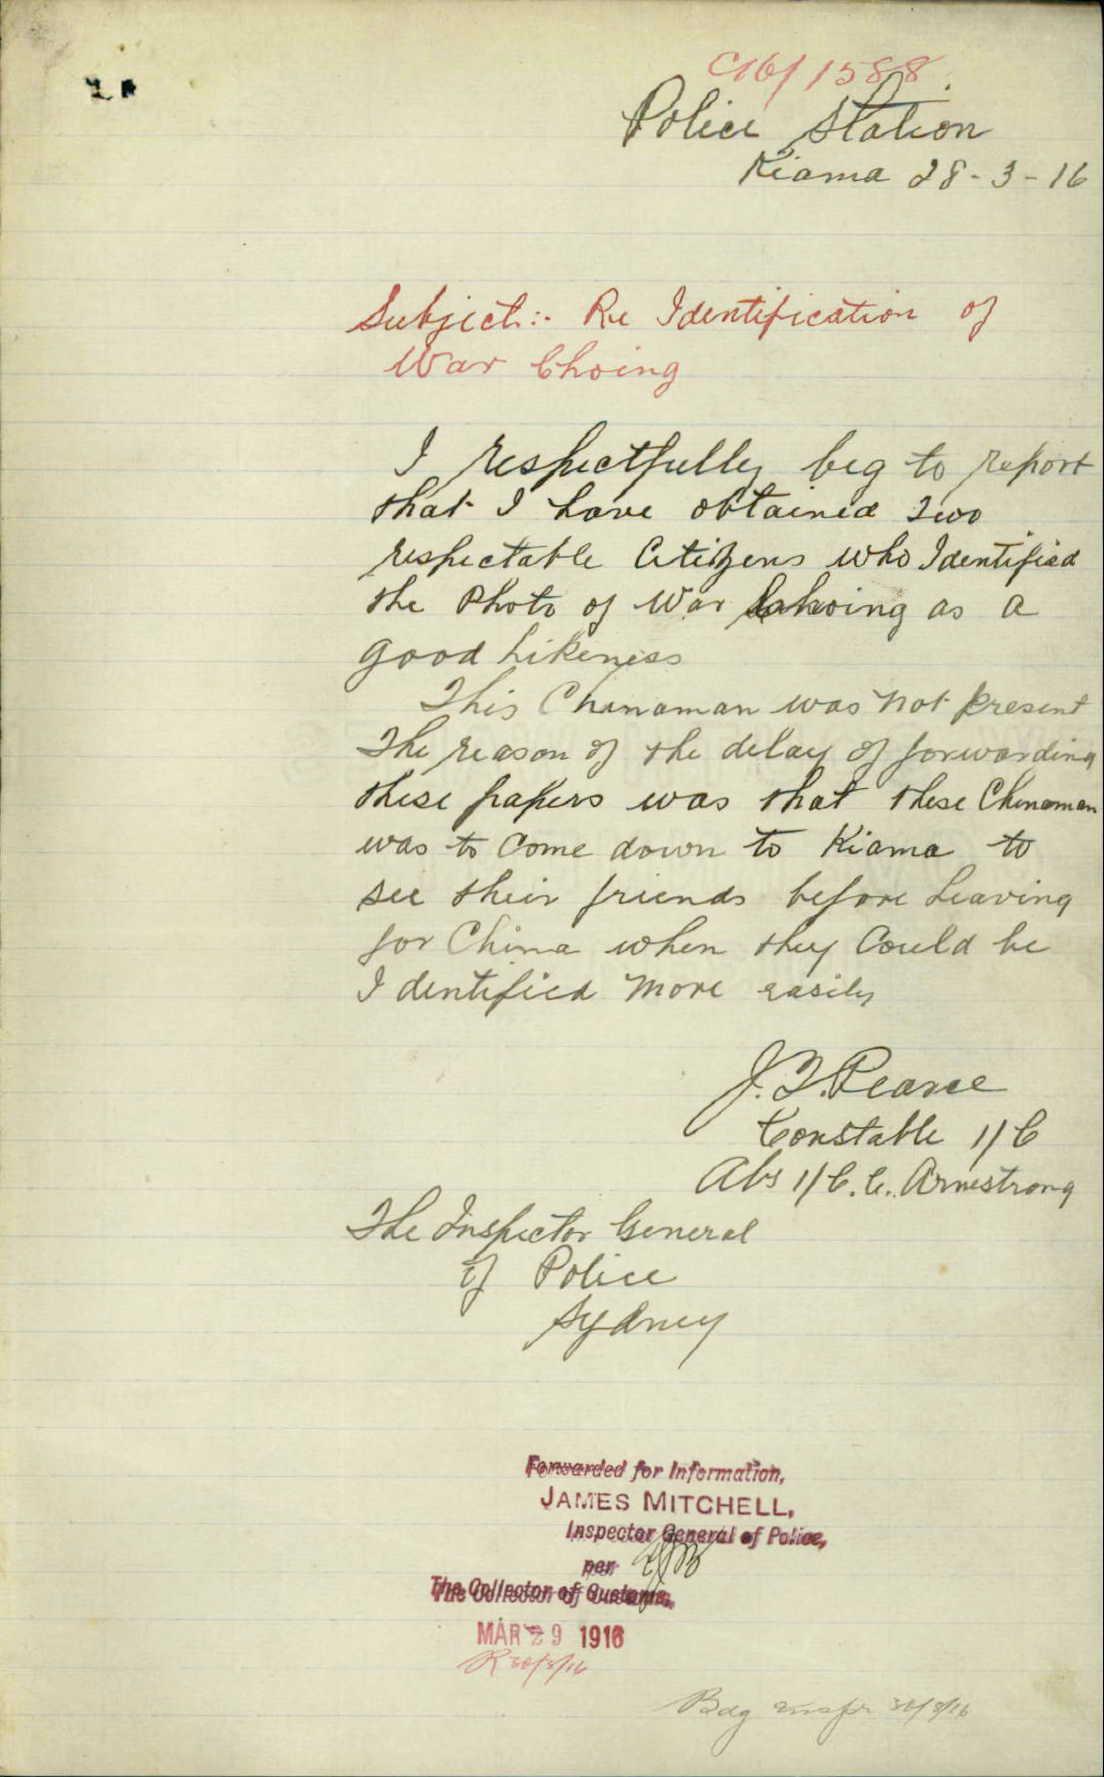 C16/1588
Police Station
Kiama 28-3-16
Subject:- Re Identification of
War Choing
I respectfully beg to report
that I have obtained two
respectable Citizens who Identified
the Photo of War Choing as a
good Likeness
This Chinaman was not present
The reason of the delay of forwarding
these papers was that these Chinaman
was to Come down to Kiama to
see their friends before Leaving
for China when they Could be
Identified more easily
J. T. Pearce
Constable 1/C
Abs 1/C. C. Armstrong
The Inspector General
of Police
Sydney
Forwarded for Information,
JAMES MITCHELL,
Inspector General of Police,
per
The Collector of Customs,
MAR 29 1916
R 30/3/16
Bag 30/3/16